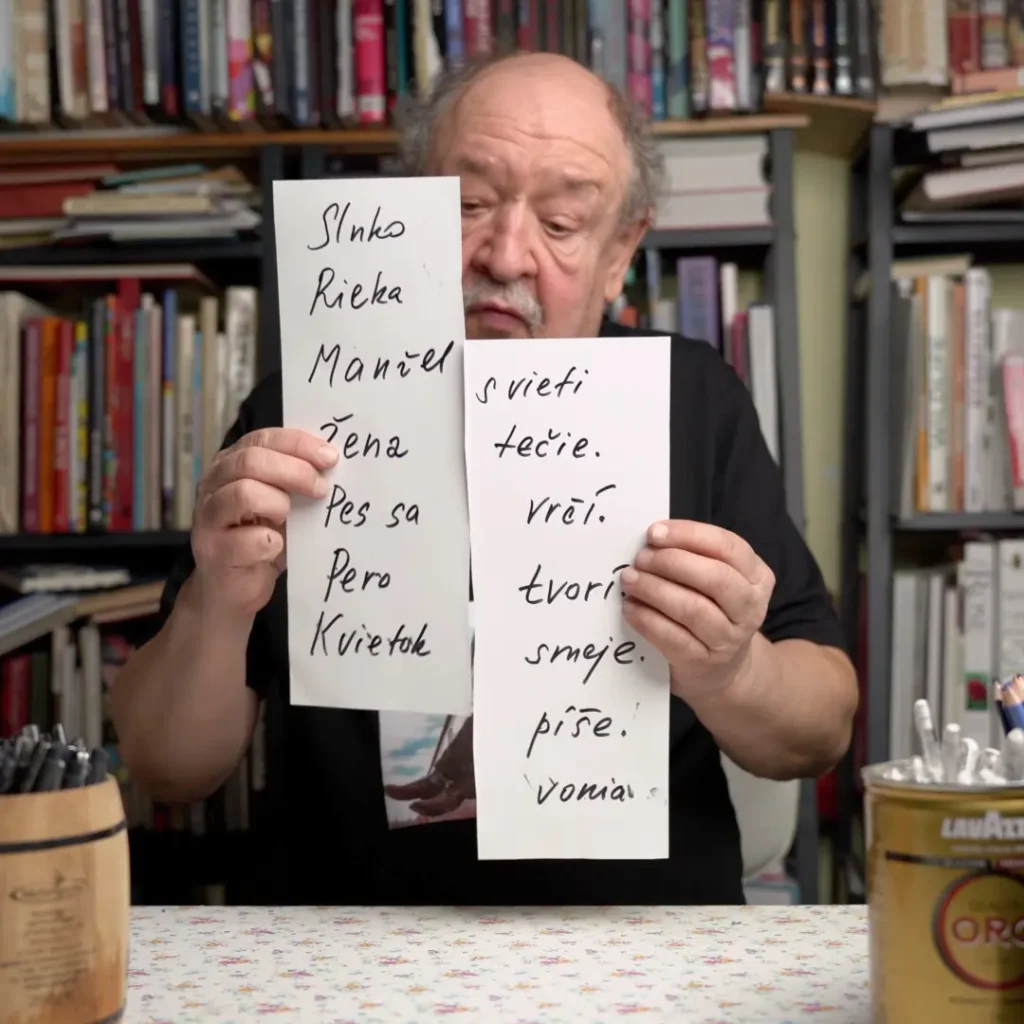 Slnko
Rieka
Manžel
Žena
Pes sa
Pero
Kvietok
svieti
tečie.
vrčí.
tvorí.
smeje.
píše.
vonia.
LAVAZZ
ORO